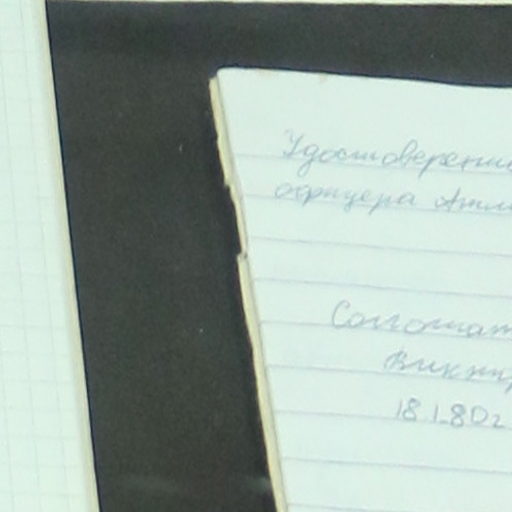 Удостоверени
офицера Атл
Соломат
Викто
18.1.80г